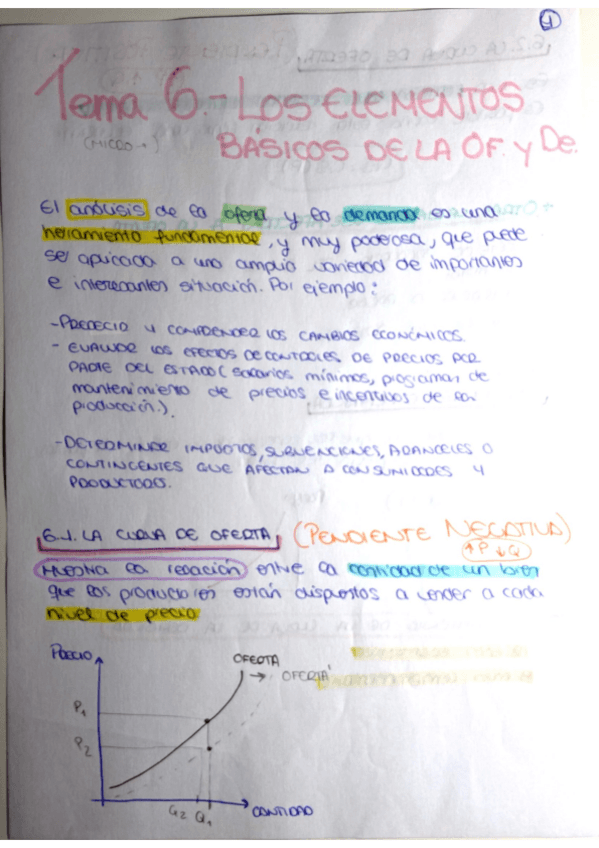 1
Tema 6.- LOS ELEMENTOS
(MICRO→)
BÁSICOS DE LA OF. y De.
El análisis de la oferta y la demanda es una
herramienta fundamental, y muy poderosa, que puede
ser aplicada a una amplia variedad de importantes
e interesantes situación. Por ejemplo:
-PREDECIR Y COMPRENDER LOS CAMBIOS ECONÓMICOS.
- EVALUAR LOS EFECTOS DE CONTROLES DE PRECIOS POR
PARTE DEL ESTADO (salarios mínimos, programas de
mantenimiento de precios e incentivos de la
producción.).
-DETERMINAR IMPUESTOS, SUBVENCIONES, ARANCELES O
CONTINGENTES QUE AFECTAN A CONSUMIDORES Y
PRODUCTORES.
6.1. LA CURVA DE OFERTA (PENDIENTE NEGATIVA)
↑P ↓Q
Muestra la relación entre la cantidad de un bien
que los productores están dispuestos a vender a cada
nivel de precio
PRECIO
OFERTA
→ OFERTA'
P1
P2
Q2 Q1
CANTIDAD